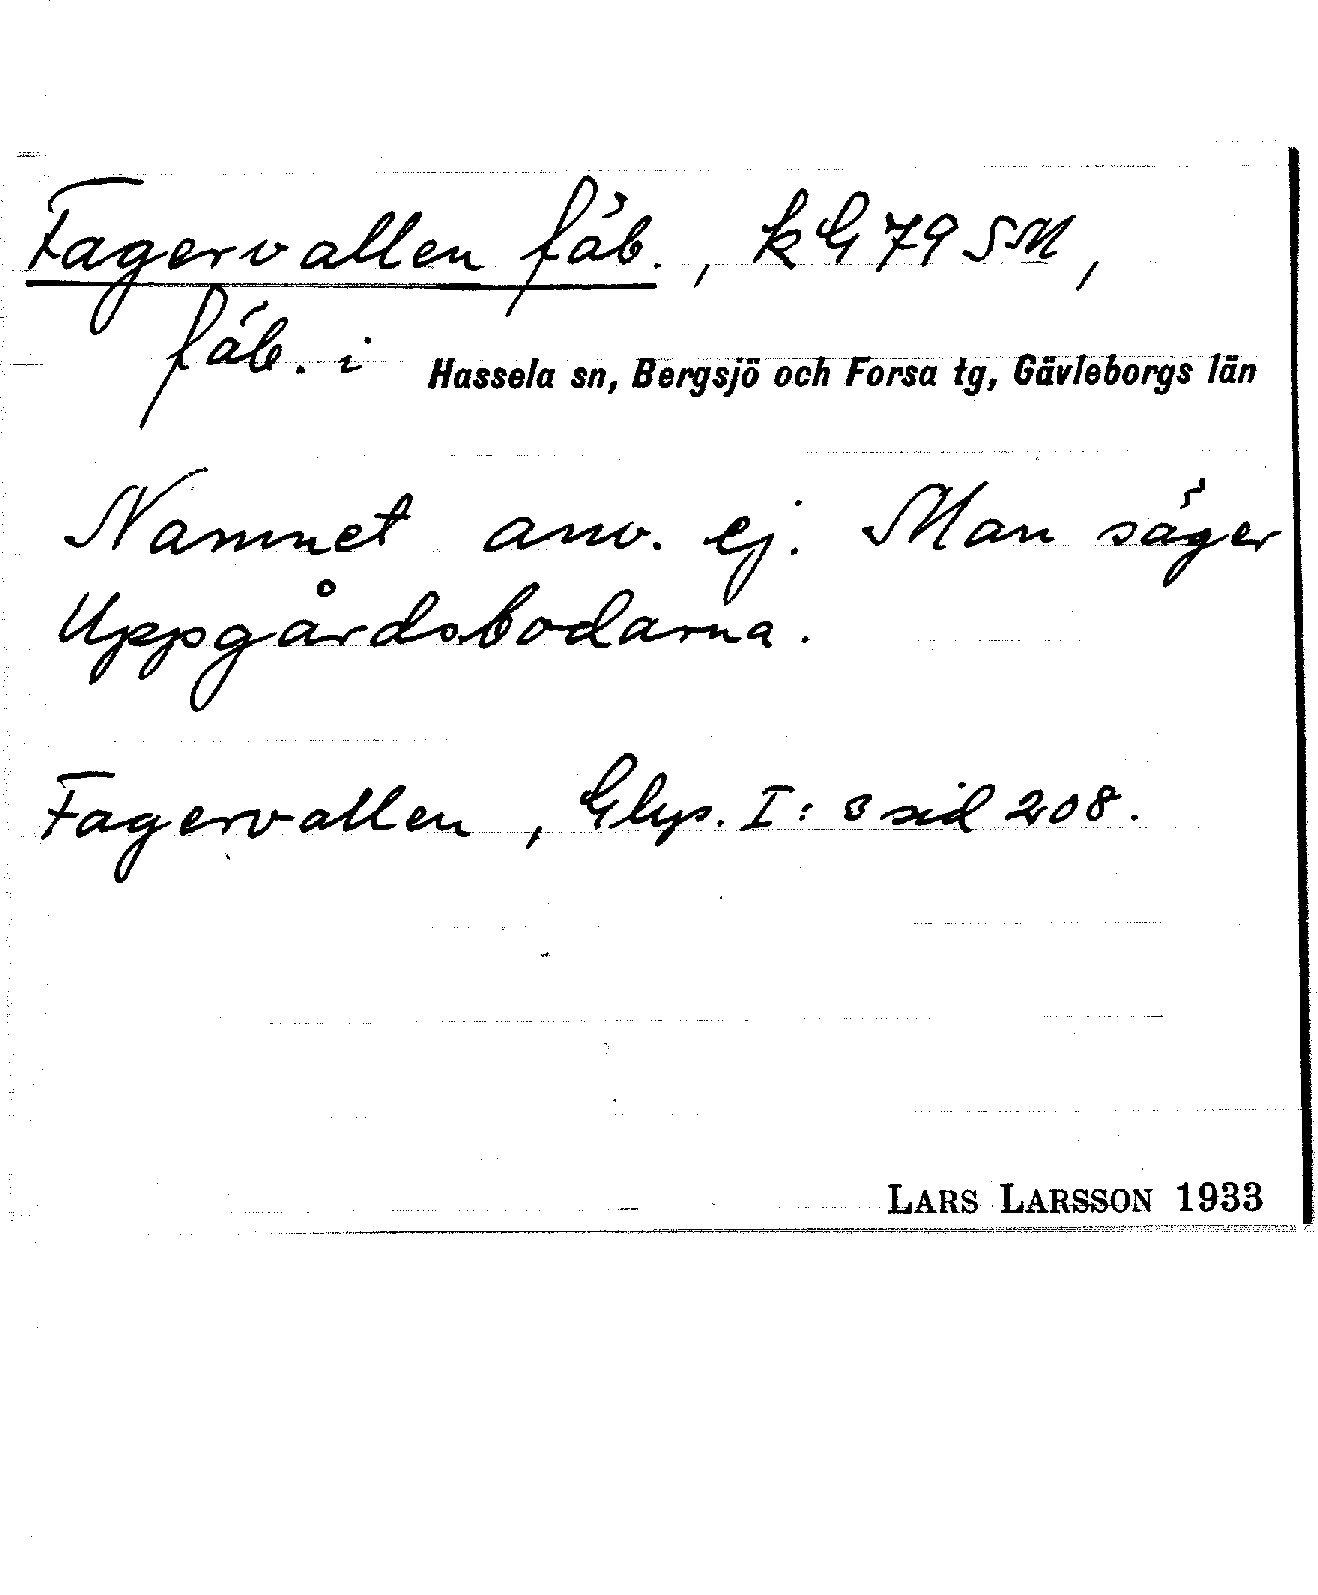 Fagervallen fäb., kG 79 SM,
fäb. i Hassela sn, Bergsjö och Forsa tg, Gävleborgs län
Namnet anv. ej. Man säger
Uppgårdsbodarna.
Fagervallen, Glys. I: 3 sid 208.
LARS LARSSON 1933